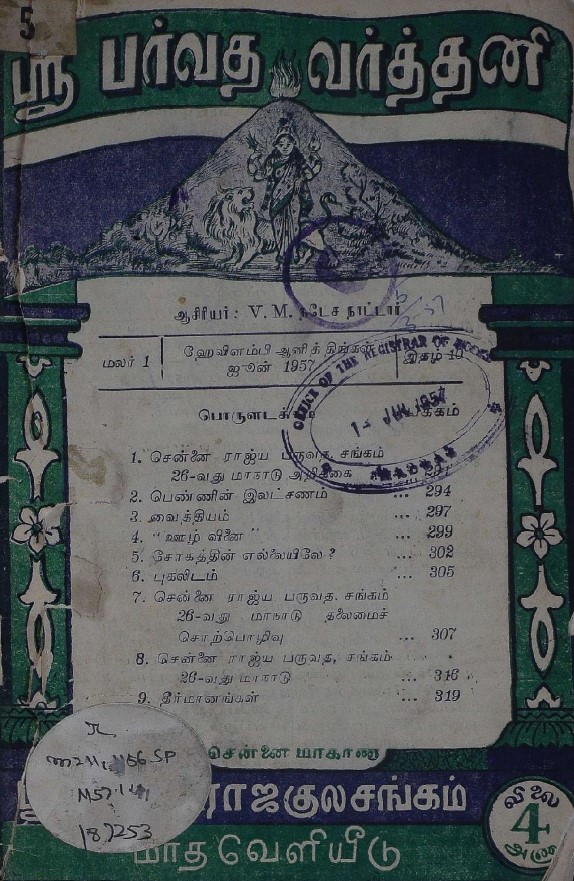 5
ஸ்ரீ பர்வத வர்த்தனி
ஆசிரியர் : V. M. நடேச நாட்டார்
மலர் 1
ஹேவிளம்பி ஆனித் திங்கள்
ஜூன் 1957
இதழ் 10
OFFICE OF THE REGISTRAR OF BOOKS
JUL 1957
MADRAS
1. சென்னை ராஜ்ய பருவத, சங்கம்
26-வது மாநாடு அறிக்கை ...
2. பெண்ணின் இலட்சணம் ... 294
3. வைத்தியம் ... 297
4. "ஊழ் வினை" ... 299
5. சோகத்தின் எல்லையிலே ? ... 302
6. புகலிடம் ... 305
7. சென்னை ராஜ்ய பருவத, சங்கம்
26-வது மாநாடு தலைமைச்
சொற்பொழிவு ... 307
8. சென்னை ராஜ்ய பருவத, சங்கம்
26-வது மாநாடு ... 316
9. தீர்மானங்கள் ... 319
சென்னை மாகாண
ராஜகுலசங்கம்
மாதவெளியீடு
விலை
4
அணா
M57
187253